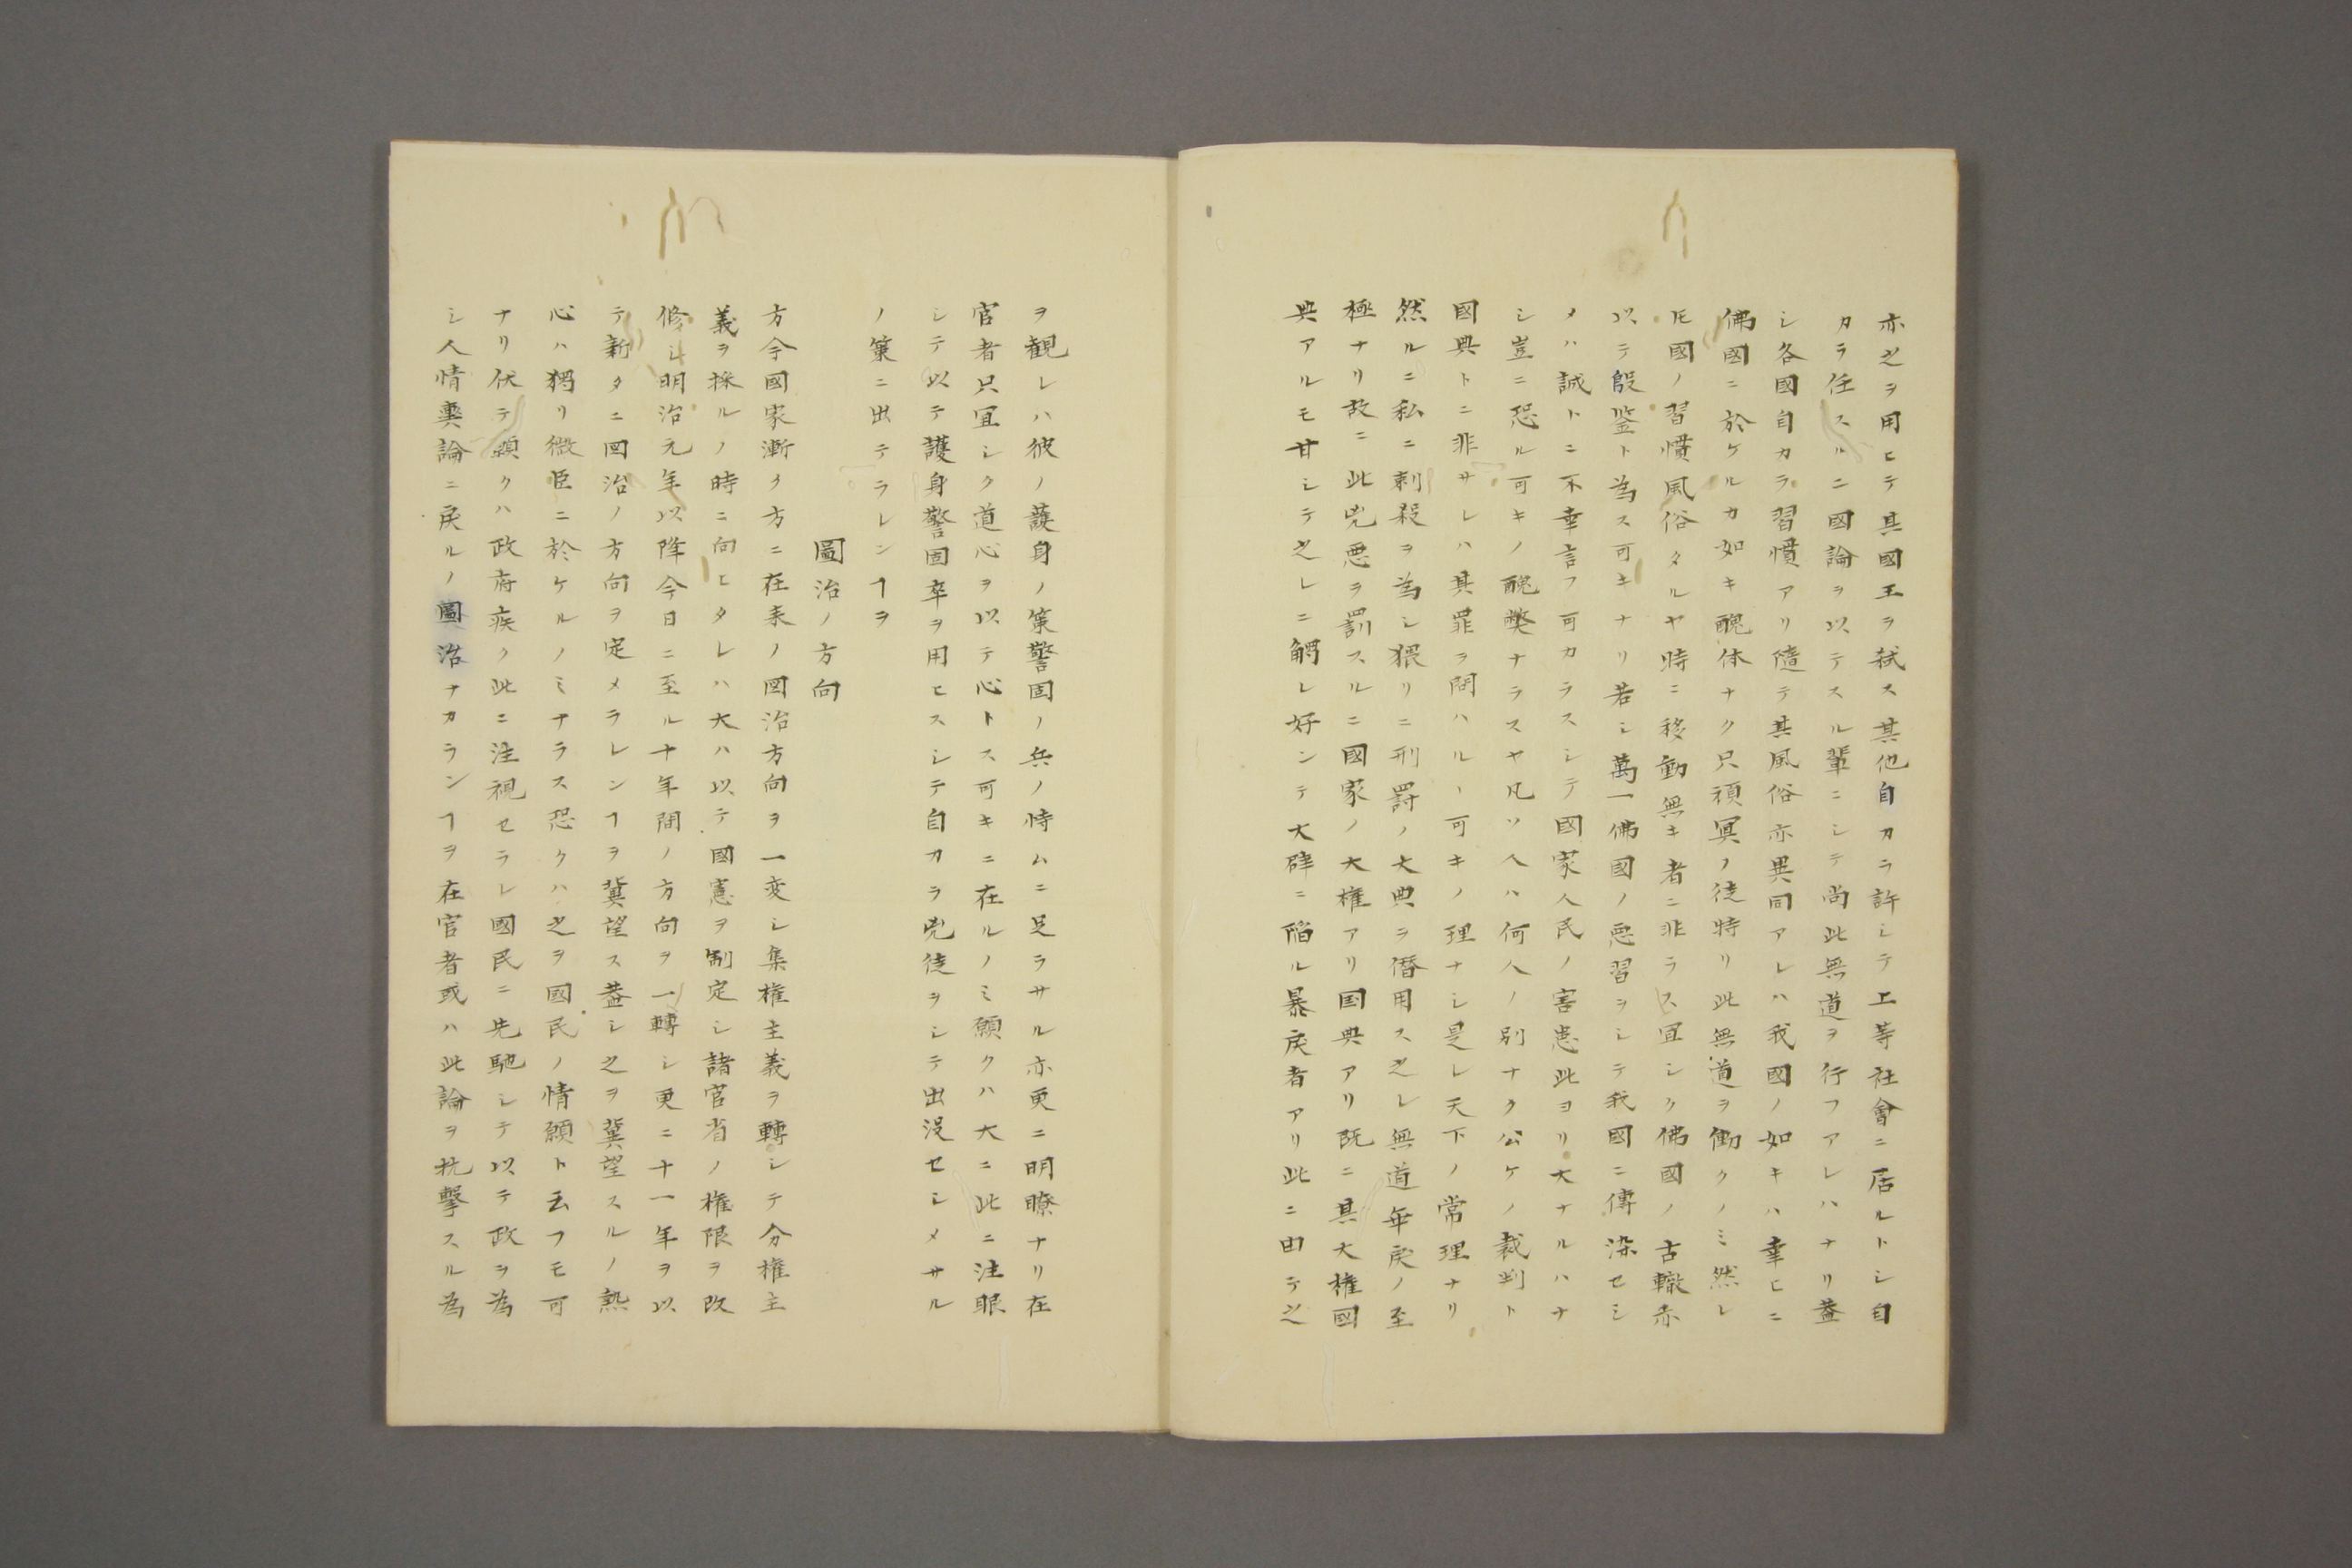 亦之ヲ用ヒテ其國王ヲ弑ス其他自カラ許シテ上等社會ニ居ルトシ自
カラ任スルニ國論ヲ以テスル輩ニシテ尚此無道ヲ行フアレハナリ蓋
シ各國自カラ習慣アリ隨テ其風俗亦異同アレハ我國ノ如キハ幸ヒニ
佛國ニ於ケルカ如キ醜体ナク只頑冥ノ徒特リ此無道ヲ働クノミ然レ
𪜈國ノ習慣風俗タルヤ時ニ移動無キ者ニ非ラス宜シク佛國ノ古轍亦
以テ殷鑒ト為ス可キナリ若シ萬一佛國ノ悪習ヲシテ我國ニ傳染セシ
メハ誠トニ不幸言フ可カラスシテ國家人民ノ害悪此ヨリ大ナルハナ
シ豈ニ恐ル可キノ醜弊ナラスヤ凡ソ人ハ何人ノ別ナク公ケノ裁判ト
國典トニ非サレハ其罪ヲ問ハルヽ可キノ理ナシ是レ天下ノ常理ナリ
然ルニ私ニ刺殺ヲ為シ猥リニ刑罰ノ大典ヲ僭用ス之レ無道乖戻ノ至
極ナリ故ニ此兇悪ヲ罰スルニ國家ノ大権アリ国典アリ既ニ其大権國
典アルモ甘シテ之レニ觸レ好ンテ大辟ニ陥ル暴戻者アリ此ニ由テ之
ヲ観レハ彼ノ護身ノ策警固ノ兵ノ恃ムニ足ラサル亦更ニ明瞭ナリ在
官者只宜シク道心ヲ以テ心トス可キニ在ルノミ願クハ大ニ此ニ注眼
シテ以テ護身警固卒ヲ用ヒスシテ自カラ兇徒ヲシテ出没セシメサル
ノ策ニ出テラレンヿヲ
圖治ノ方向
方今國家漸ク方ニ在来ノ図治方向ヲ一変シ集権主義ヲ轉シテ分権主
義ヲ採ルノ時ニ向ヒタレハ大ハ以テ國憲ヲ制定シ諸官省ノ権限ヲ改
修シ明治元年以降今日ニ至ル十年間ノ方向ヲ一轉シ更ニ十一年ヲ以
テ新タニ図治ノ方向ヲ定メラレンヿヲ冀望ス蓋シ之ヲ冀望スルノ熱
心ハ獨リ微臣ニ於ケルノミナラス恐クハ之ヲ國民ノ情願ト云フモ可
ナリ伏テ願クハ政府疾ク此ニ注視セラレ國民ニ先馳シテ以テ政ヲ為
シ人情輿論ニ戻ルノ圖治ナカランヿヲ在官者或ハ此論ヲ抗撃スル為